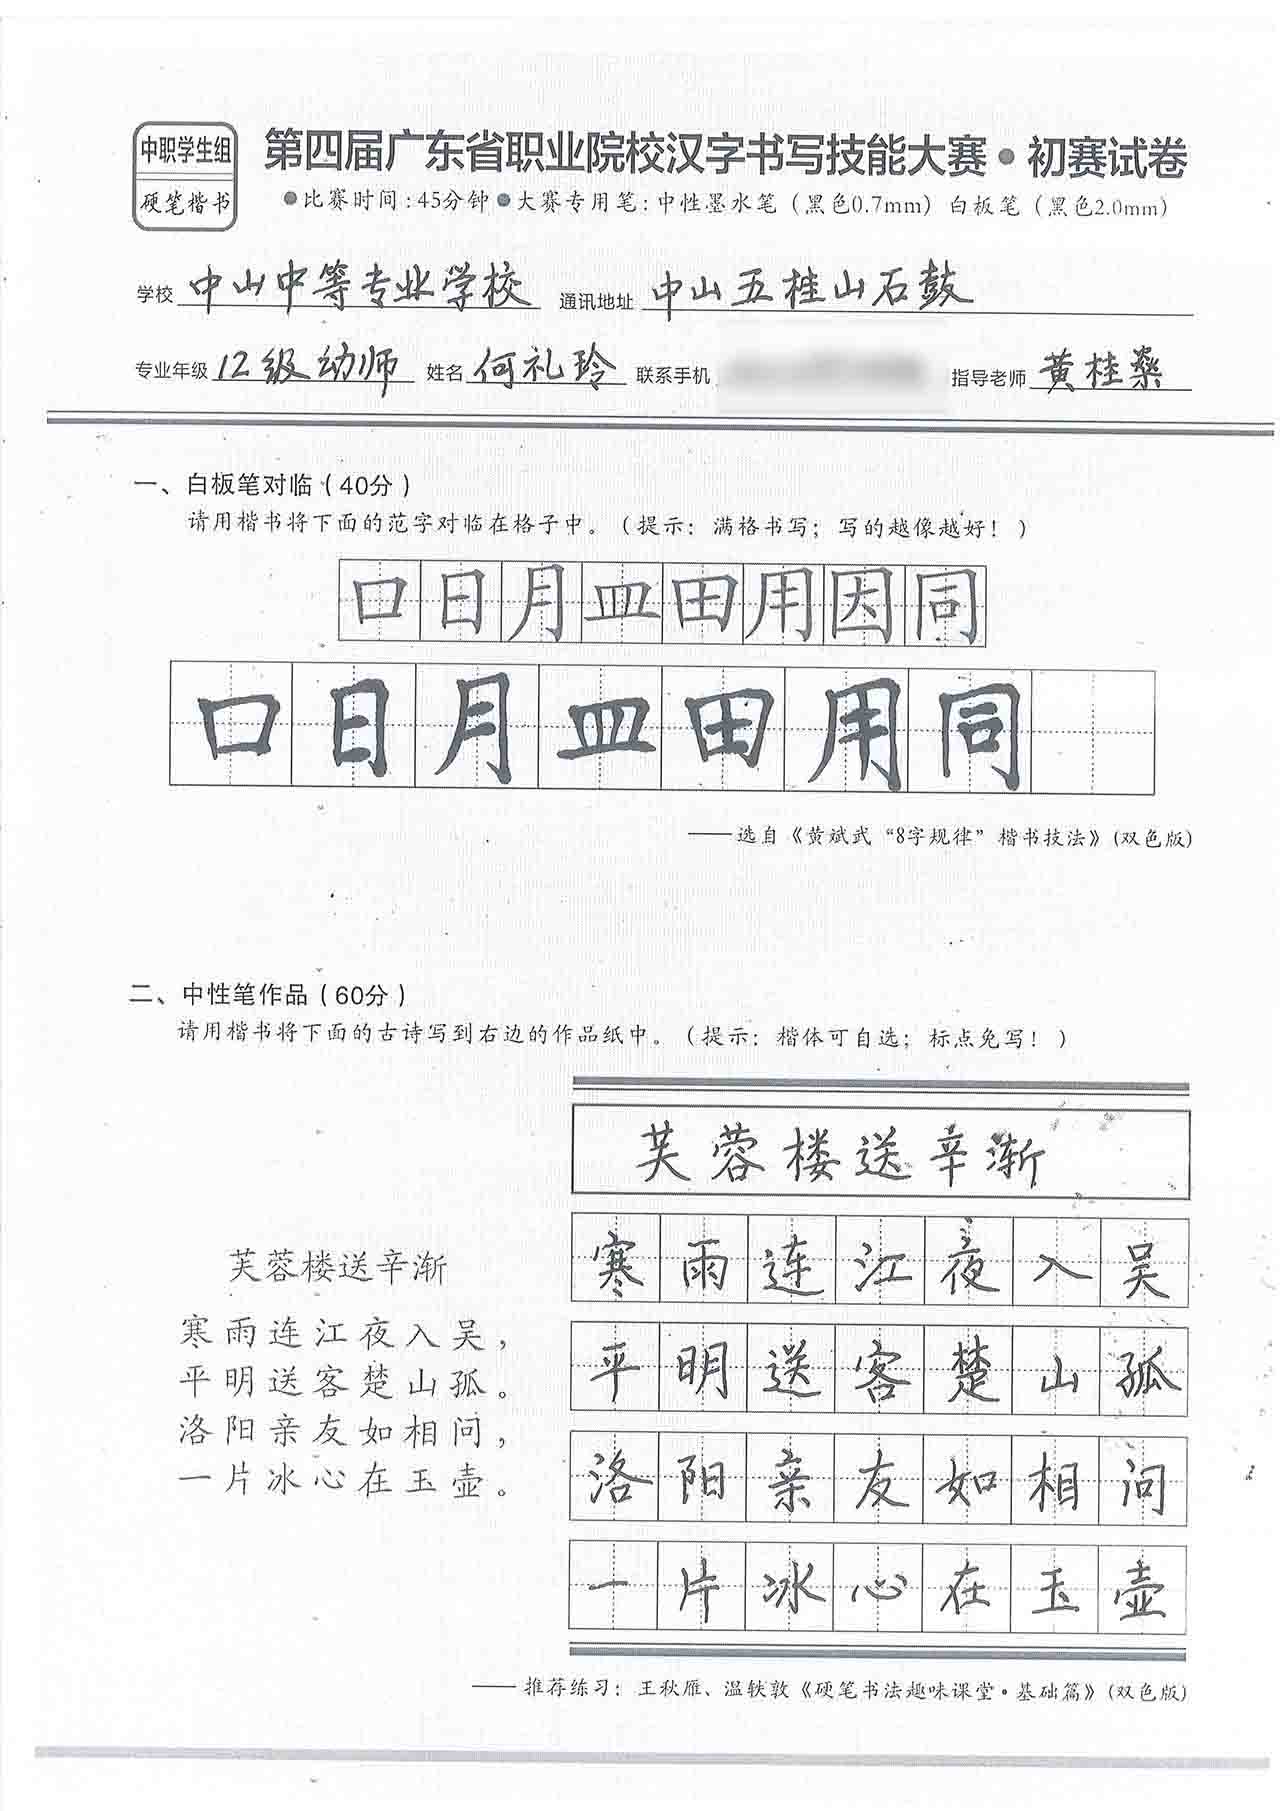 中职学生组
硬笔楷书
第四届广东省职业院校汉字书写技能大赛·初赛试卷
●比赛时间:45分钟●大赛专用笔:中性墨水笔（黑色0.7mm）白板笔（黑色2.0mm）
学校 中山中等专业学校 通讯地址 中山五桂山石鼓
专业年级 12级幼师 姓名 何礼玲 联系手机 指导老师 黄桂燊
一、白板笔对临（40分）
请用楷书将下面的范字对临在格子中。（提示：满格书写；写的越像越好！）
口日月皿田用因同
口日月皿田用同
——选自《黄斌武“8字规律”楷书技法》(双色版)
二、中性笔作品（60分）
请用楷书将下面的古诗写到右边的作品纸中。（提示：楷体可自选；标点免写！）
芙蓉楼送辛渐
寒雨连江夜入吴，
平明送客楚山孤。
洛阳亲友如相问，
一片冰心在玉壶。
芙蓉楼送辛渐
寒雨连江夜入吴
平明送客楚山孤
洛阳亲友如相问
一片冰心在玉壶
——推荐练习：王秋雁、温轶敦《硬笔书法趣味课堂·基础篇》(双色版)